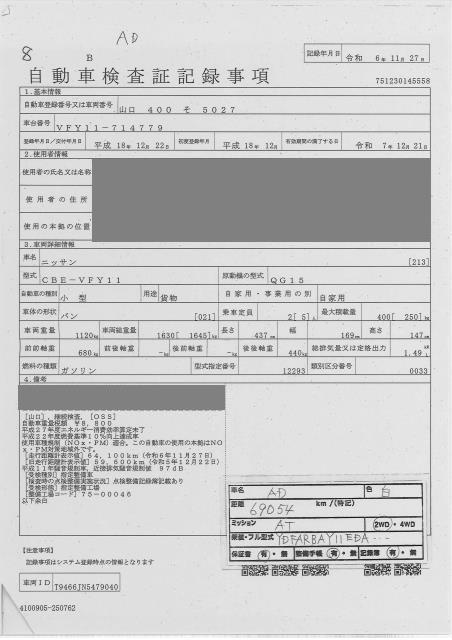 AD
8
B
記録年月日 令和 6年11月27日
自動車検査証記録事項
751230145558
1.基本情報
自動車登録番号又は車両番号 山口 400 そ 5027
車台番号 VFY11-714779
登録年月日/交付年月日 平成 18年 12月 22日 初度登録年月 平成 18年 12月 有効期間の満了する日 令和 7年 12月 21日
2.使用者情報
使用者の氏名又は名称
使用者の住所
使用の本拠の位置
3.車両詳細情報
車名 ニッサン [213]
型式 CBE-VFY11 原動機の型式 QG15
自動車の種別 小型 用途 貨物 自家用・事業用の別 自家用
車体の形状 バン [021] 乗車定員 2[ 5]人 最大積載量 400[ 250]kg
車両重量 1120kg 車両総重量 1630[ 1645]kg 長さ 437cm 幅 169cm 高さ 147cm
前前軸重 680kg 前後軸重 -kg 後前軸重 -kg 後後軸重 440kg 総排気量又は定格出力 1.49
燃料の種類 ガソリン 型式指定番号 12293 類別区分番号 0033
4.備考
[山口],継続検査,[OSS]
自動車重量税額 ¥8,800
平成27年度エネルギー消費効率算定未了
平成22年度燃費基準10%向上達成車
使用車種規制(NOx・PM)適合。この自動車の使用の本拠はNO
x・PM対策地域外です。
[走行距離計表示値] 64,100km(令和6年11月27日)
[旧走行距離計表示値] 59,600km(令和5年12月22日)
平成11年騒音規制車,近接排気騒音規制値 97dB
[受検種別] 指定整備車
[検査時の点検整備実施状況] 点検整備記録簿記載あり
[受検形態] 指定整備工場
[整備工場コード] 75-00046
以下余白
車名 AD 色 白
距離 69054 km/(特記)
ミッション AT 2WD・4WD
型式・フル型式 YDFARBAY11EDA---
保証書 有・無 整備手帳 有・無 記録簿 有・無
【注意事項】
記録事項はシステム登録時点の情報となります
車両ID T9466JN5479040
4100905-250762